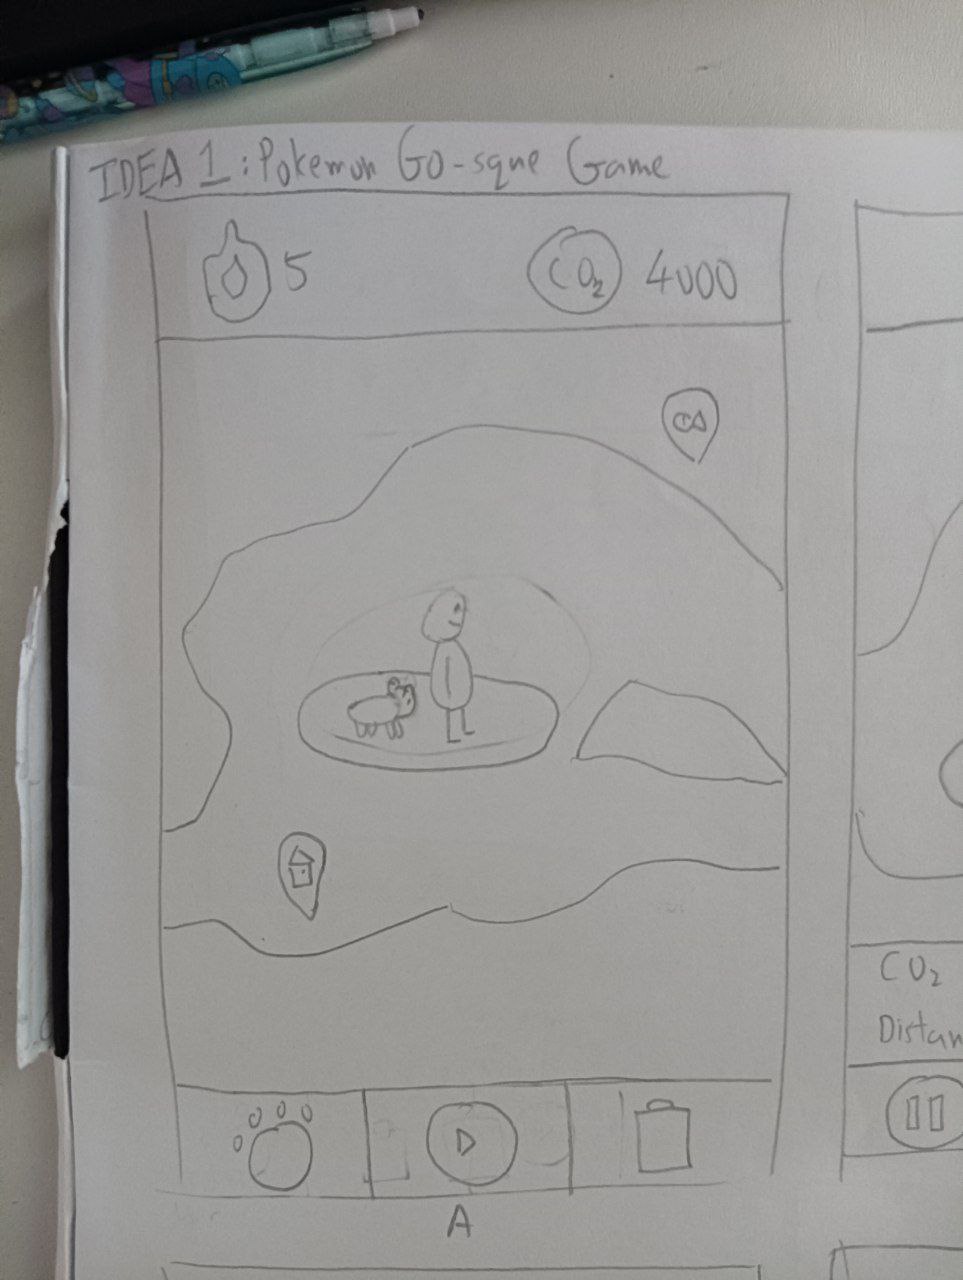 IDEA 1: Pokemon Go-sque Game
5
CO2 4000
CO2
Distan
A